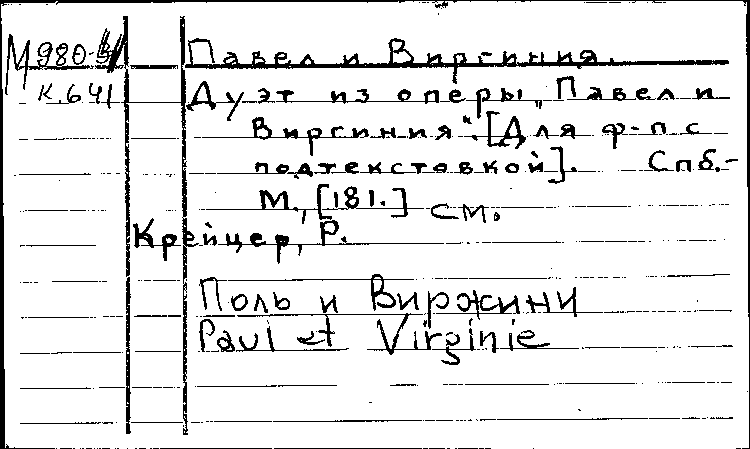 М 980- Павел и Виргиния.
К.641 Дуэт из оперы „Павел и
Виргиния“. [Для ф-п с
подтекстовкой]. Спб.-
М., [181.] см.
Крейцер, Р.
Поль и Виржини
Paul et Virginie